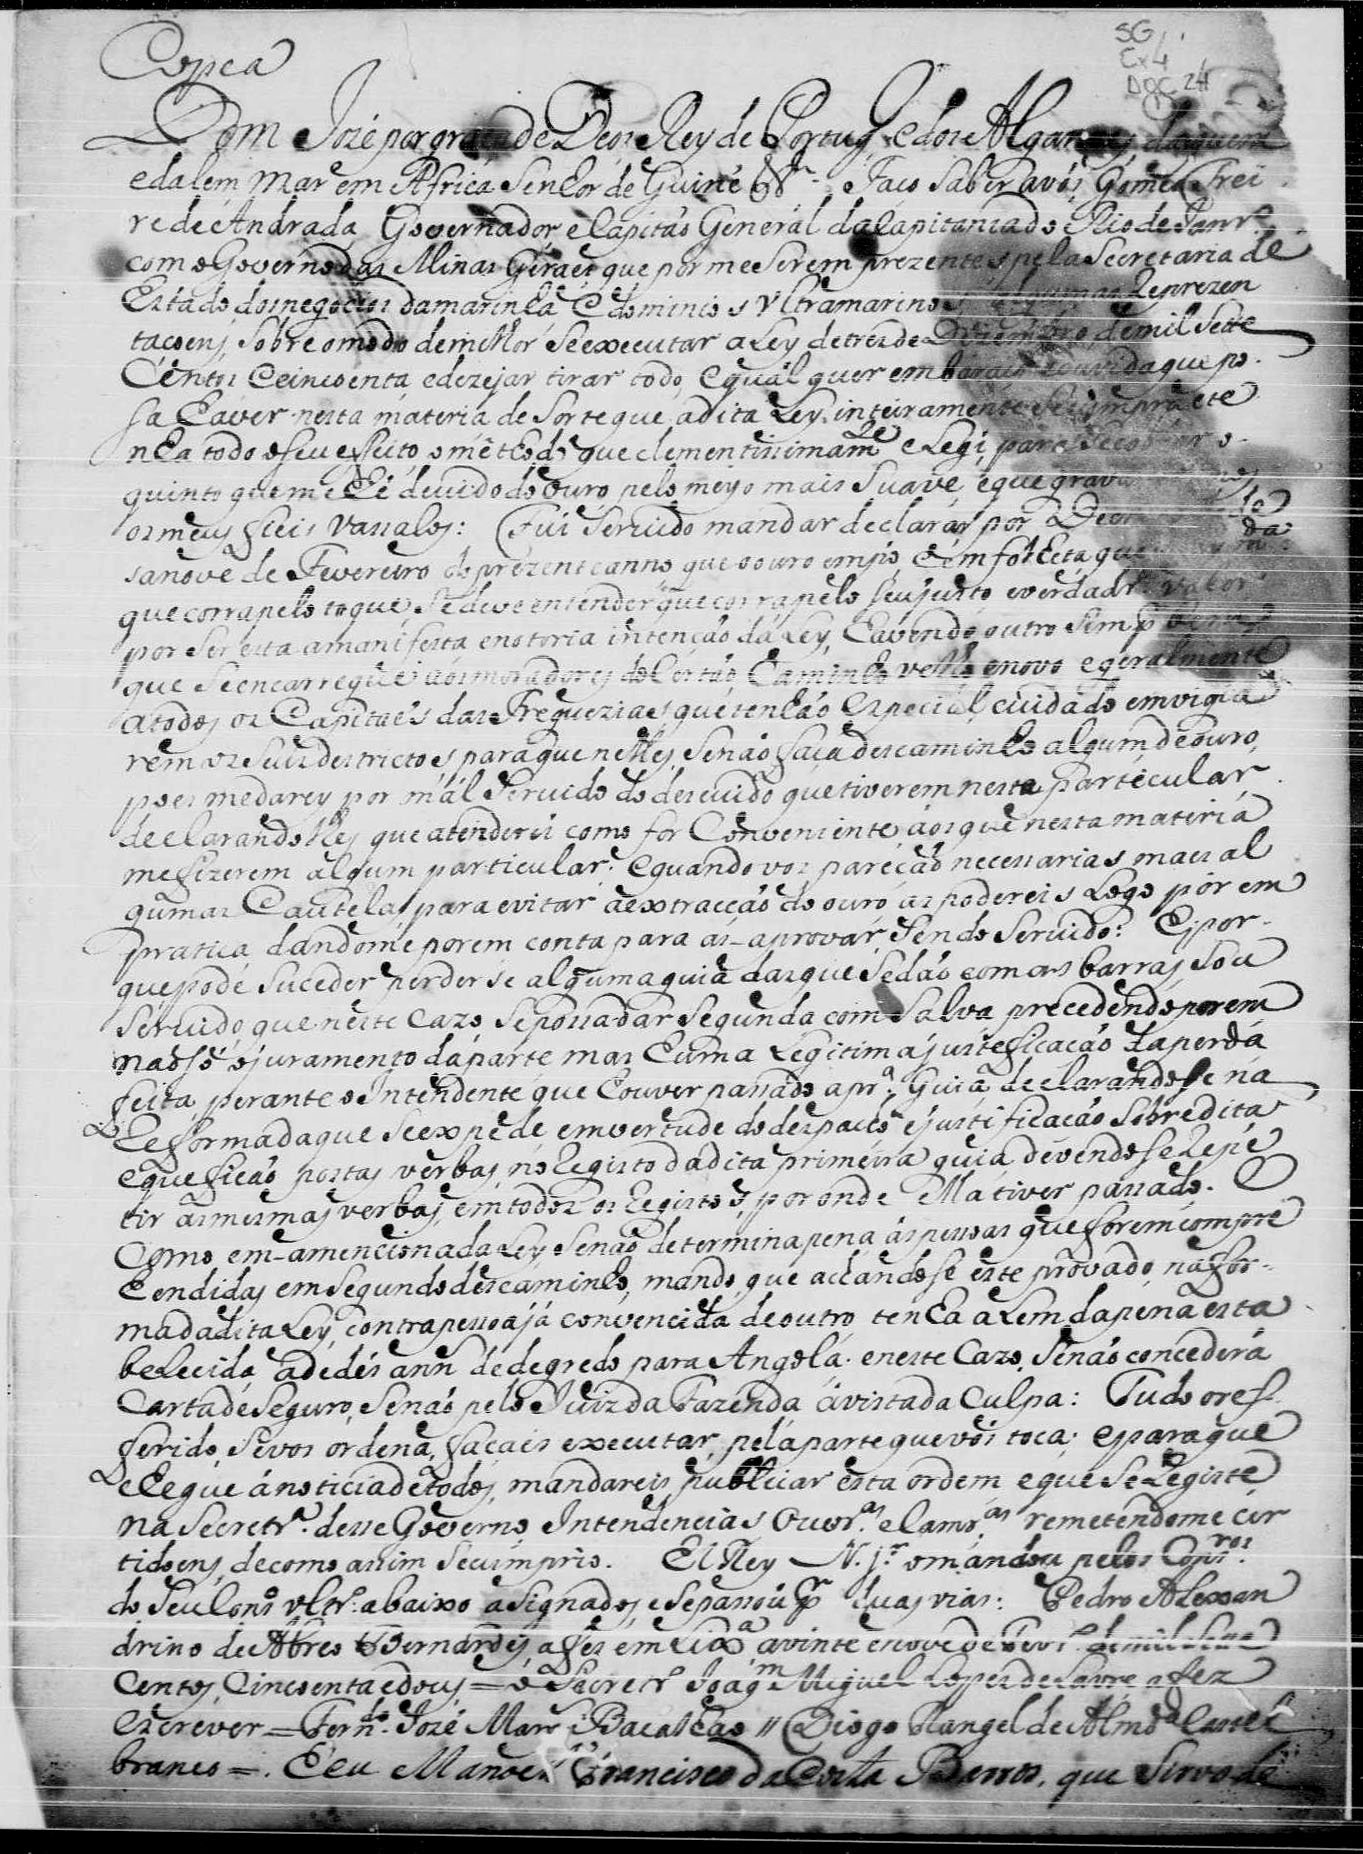 SG
Cx 4
Doc 24
Copea
Dom Jozé por graça de Deos Rey de Portug. e dos Algarves, daquem
e dalem Mar em Africa Senhor de Guiné &ª. Faço saber a vós Gomes Frei
re de Andrada Governador e Capitaõ General da Capitania do Rio de Janrº
com o Governo das Minas Geraes que por me serem prezentes pela Secretaria de
Estado dos negocios da marinha e dominios Vltramarinos algumas Reprezen
taçoens, sobre o modo de milhór se executar a Ley de tres de Dezembro de mil sete
Centos e cincoenta e dezejar tirar todo, e qual quer embaraço e duvida que po
sa haver nesta materia de sorte que a dita Ley inteiramente se cumpra e te
nha todo o seu effeito o methodo que clementissimamte elegi para se cobrar o
quinto que me hé devido do Ouro pelo meyo mais suave, e que grava
os meus fieis vassalos: Fui servido mandar declarar por Decr to de
sanove de Fevereiro do prezente anno que o ouro em pó, e em folheta que
que corra pelo toque, se deve entender que corra pelo seu justo, e verdadrº valor
por ser esta a manifesta e notoria intenção da Ley, havendo outro sim p
que se encarregue aos moradores do Certaõ Caminho velho e novo e geralmente
a todos os Capitaẽs das Freguezias que tenhaõ especial cuidado em vigia
rem os seus destrictos para que nelles, senaõ faça descaminho algum de ouro,
pois me darey por mál servido do descuido que tiverem nesta particular
declarandolhes que atenderei como for Conveniente aos que nesta materia
me fizerem algum particular. e quando vos pareçaõ necessarias mais al
gumas Cautelas para evitar a extracçaõ do ouro as podereis logo pôr em
pratica, dandome porem conta para as aprovar sendo servido: E por
que pode suceder perderse alguma guia das que se daõ com as barras sou
servido que neste cazo se possa dar segunda com salva precedendo porem
naõ só o juramento da parte mas huma legitima justeficaçaõ da perda
feita perante o Intendente que houver passado a prª Guia declarandosse na
Reforma da que se expede em vertude do despacho e justificaçaõ sobredita
e que ficaõ postas verbas no Registo da dita primeira guia devendosse repe
tir as mesmas verbas, em todos os Registos, por onde ella tiver passado. E
Como em a mencionada Ley senaõ determina pena ás pessoas que forem compre
hendidas em segundo descaminho, mando, que achandose este provado na for
ma da dita Ley, contra pessoa já convencida de outro tenha alem da pena esta
belecida a de dés ann de degredo para Angola. e neste Cazo, senaõ concederá
Carta de seguro, senaõ pelo Juiz da Fazenda á vista da Culpa: Tudo o ref
ferido, se vos ordena, façais executar, pela parte que vos toca: e para que
chegue á noticia de todos, mandareis publicar esta ordem e que se Registe
na Secretrª desse Governo, Intendencias Ouvrªs e Camrªs remetendome cer
tidoens, de como assim se cumprio. El Rey N. Sr o mandou pelos Consrros
do seu Cons. Vltr. abaixo asignados, e se passou pr duas vias: Pedro Alexan
drino de Abreo Bernardes, a fes em Lixª a vinte e nove de Fevrº de mil sete
Centos, Cincoenta e dous = o Secretr Joaqm Miguel Lopes de Lavre a fez
escrever = Ferndo Jozé Marqs Bacalhao // Diogo Rangel de Almdª Castel
branco =. E eu Manoel Francisco da Costa Barros, que Sirvo de